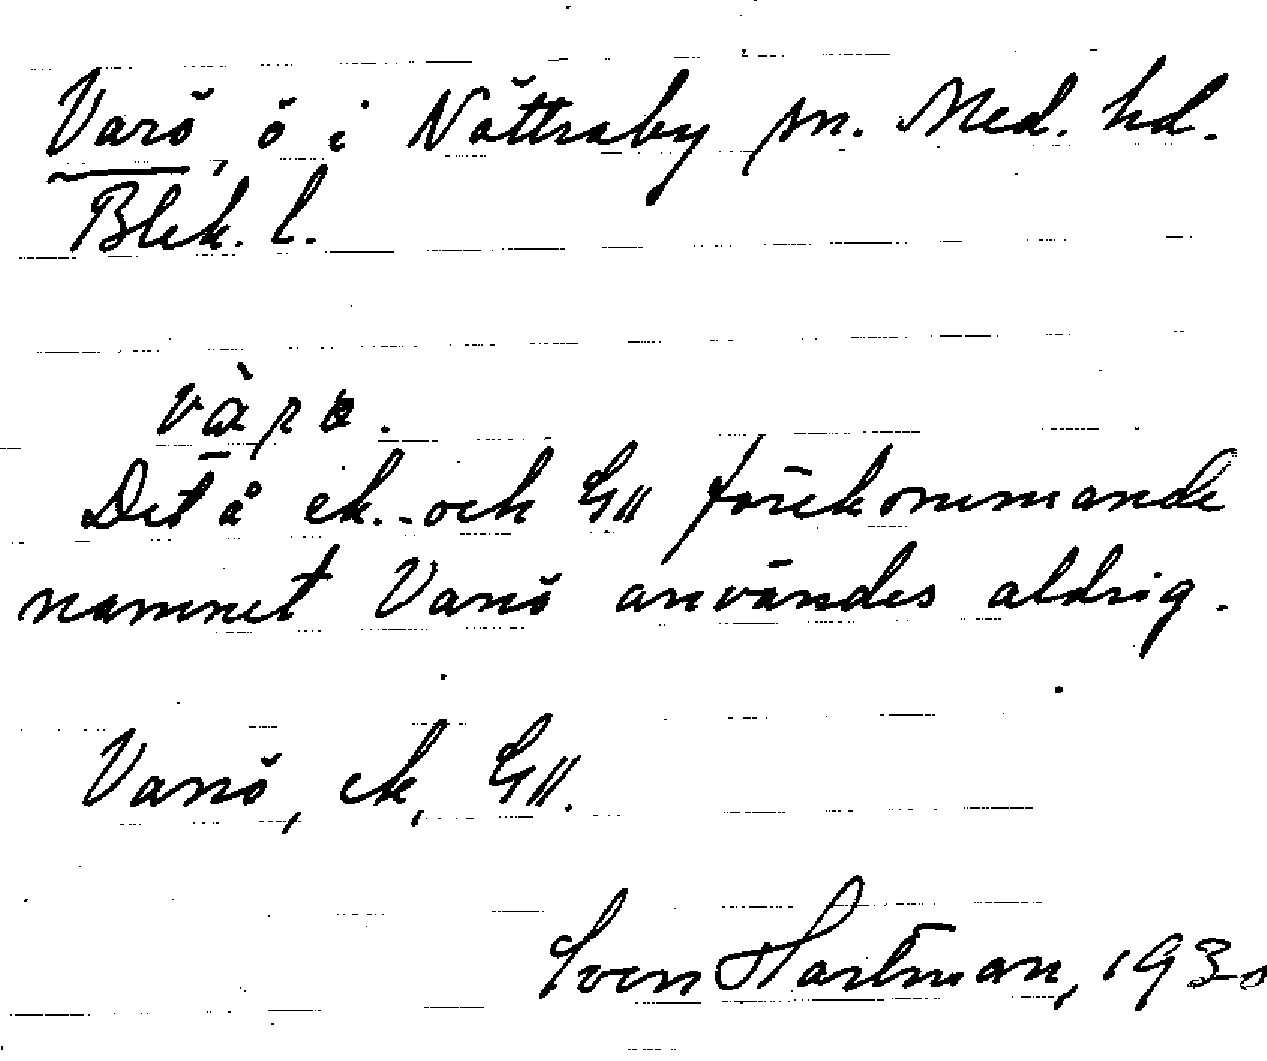 Varö, ö i Nättraby sn. Med. hd.
Blek. l.
vàrə.
Det å ek. och GII förekommande
namnet Vanö användes aldrig.
Vanö, ek, GII.
Sven Hartman, 1930